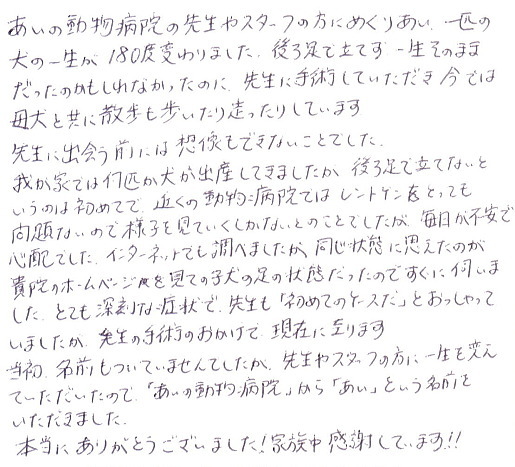 あいの動物病院の先生やスタッフの方にめぐりあい、一匹の
犬の一生が180度変わりました。後ろ足で立てず一生そのまま
だったのかもしれなかったのに、先生に手術していただき今では
母犬と共に散歩も歩いたり走ったりしています
先生に出会う前には想像もできないことでした。
我が家では何匹か犬が出産してきましたが、後ろ足で立てないと
いうのは初めてで、近くの動物病院ではレントゲンをとっても
問題ないので様子を見ていくしかないとのことでしたが、毎日が不安で
心配でした。インターネットでも調べましたが、同じ状態に思えたのが
貴院のホームページを見ての子犬の足の状態だったのですぐに伺いま
した。とても深刻な症状で、先生も「初めてのケースだ」とおっしゃって
いましたが、先生の手術のおかげで現在に至ります
当初、名前もついていませんでしたが、先生やスタッフの方に一生を変え
ていただいたので、「あいの動物病院」から「あい」という名前を
いただきました。
本当にありがとうございました!家族中感謝しています!!